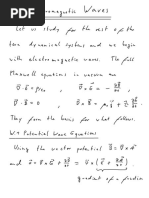 Electromagnetic Waves
Let us study for the rest of the
two dynamical systems and we begin
with electromagnetic waves. The full
Maxwell equations in vacuum are
∇·E = ρ/ε₀, ∇×E = -∂B/∂t
∇·B = 0
They form the basis for what follows.
Potential Wave Equations
Using the vector potential
and
gradient of a function